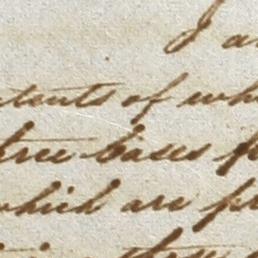 I a
tents of wh
tree bases f
which are pr